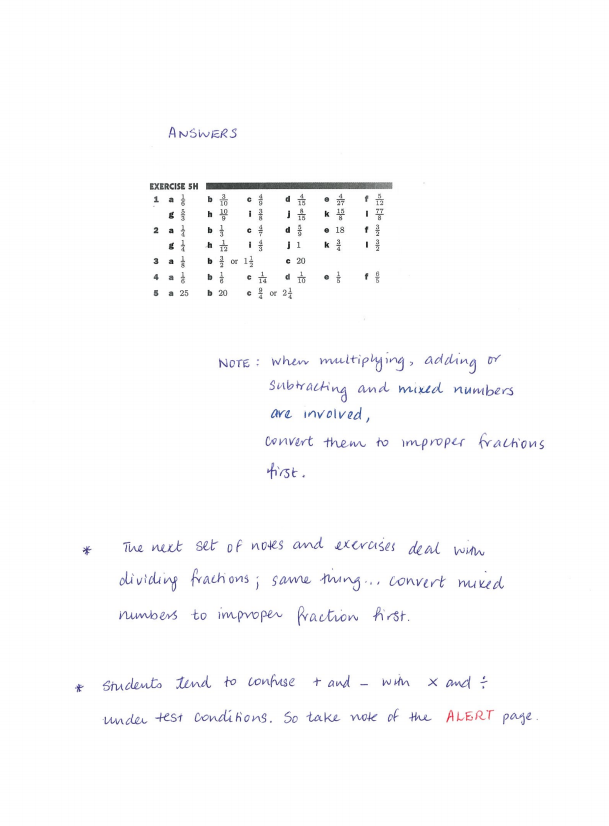 ANSWERS
EXERCISE 5H
1 a 1/6 b 3/10 c 4/9 d 4/15 e 4/27 f 5/12
g 5/3 h 10/9 i 3/8 j 8/15 k 15/8 l 77/8
2 a 1/4 b 1/3 c 4/7 d 5/9 e 18 f 3/2
g 1/4 h 1/12 i 4/3 j 1 k 3/4 l 3/2
3 a 1/8 b 3/2 or 1 1/2 c 20
4 a 1/6 b 1/6 c 1/14 d 1/10 e 1/5 f 6/5
5 a 25 b 20 c 9/4 or 2 1/4
NOTE : when multiplying, adding or
subtracting and mixed numbers
are involved,
convert them to improper fractions
first.
* The next set of notes and exercises deal with
dividing fractions; same thing... convert mixed
numbers to improper fraction first.
* Students tend to confuse + and – with × and ÷
under test conditions. So take note of the ALERT page.